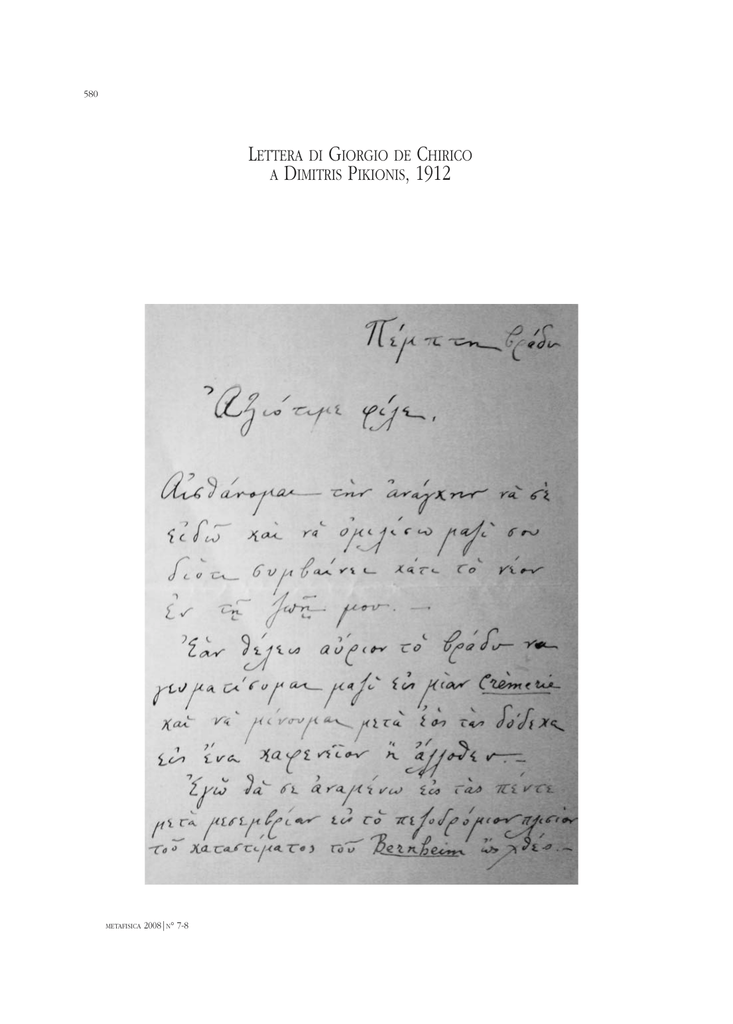 580
LETTERA DI GIORGIO DE CHIRICO
A DIMITRIS PIKIONIS, 1912
Πέμπτη βράδυ
Ἀξιότιμε φίλε,
Αἰσθάνομαι τὴν ἀνάγκην νὰ σὲ
εἰδῶ καὶ νὰ ὁμιλίσω μαζὶ σου
διότι συμβαίνει κάτι τὸ νέον
ἐν τῇ ζωῇ μου. —
Ἐὰν θέλεις αὔριον τὸ βράδυ να
γευματίσομαι μαζὶ εἰς μίαν Crèmerie
καὶ νὰ μένουμαι μετὰ ἑὸς τὰς δόδεκα
εἰς ἕνα καφενεῖον ἢ ἄλλοθεν. —
Ἐγῶ θὰ σε ἀναμένω εἰς τὰς πέντε
μετὰ μεσεμβρίαν εἰς τὸ πεζοδρόμιον πλισίον
τοῦ καταστίματος τοῦ Bernheim ὣς χθές. —
METAFISICA 2008 | N° 7-8